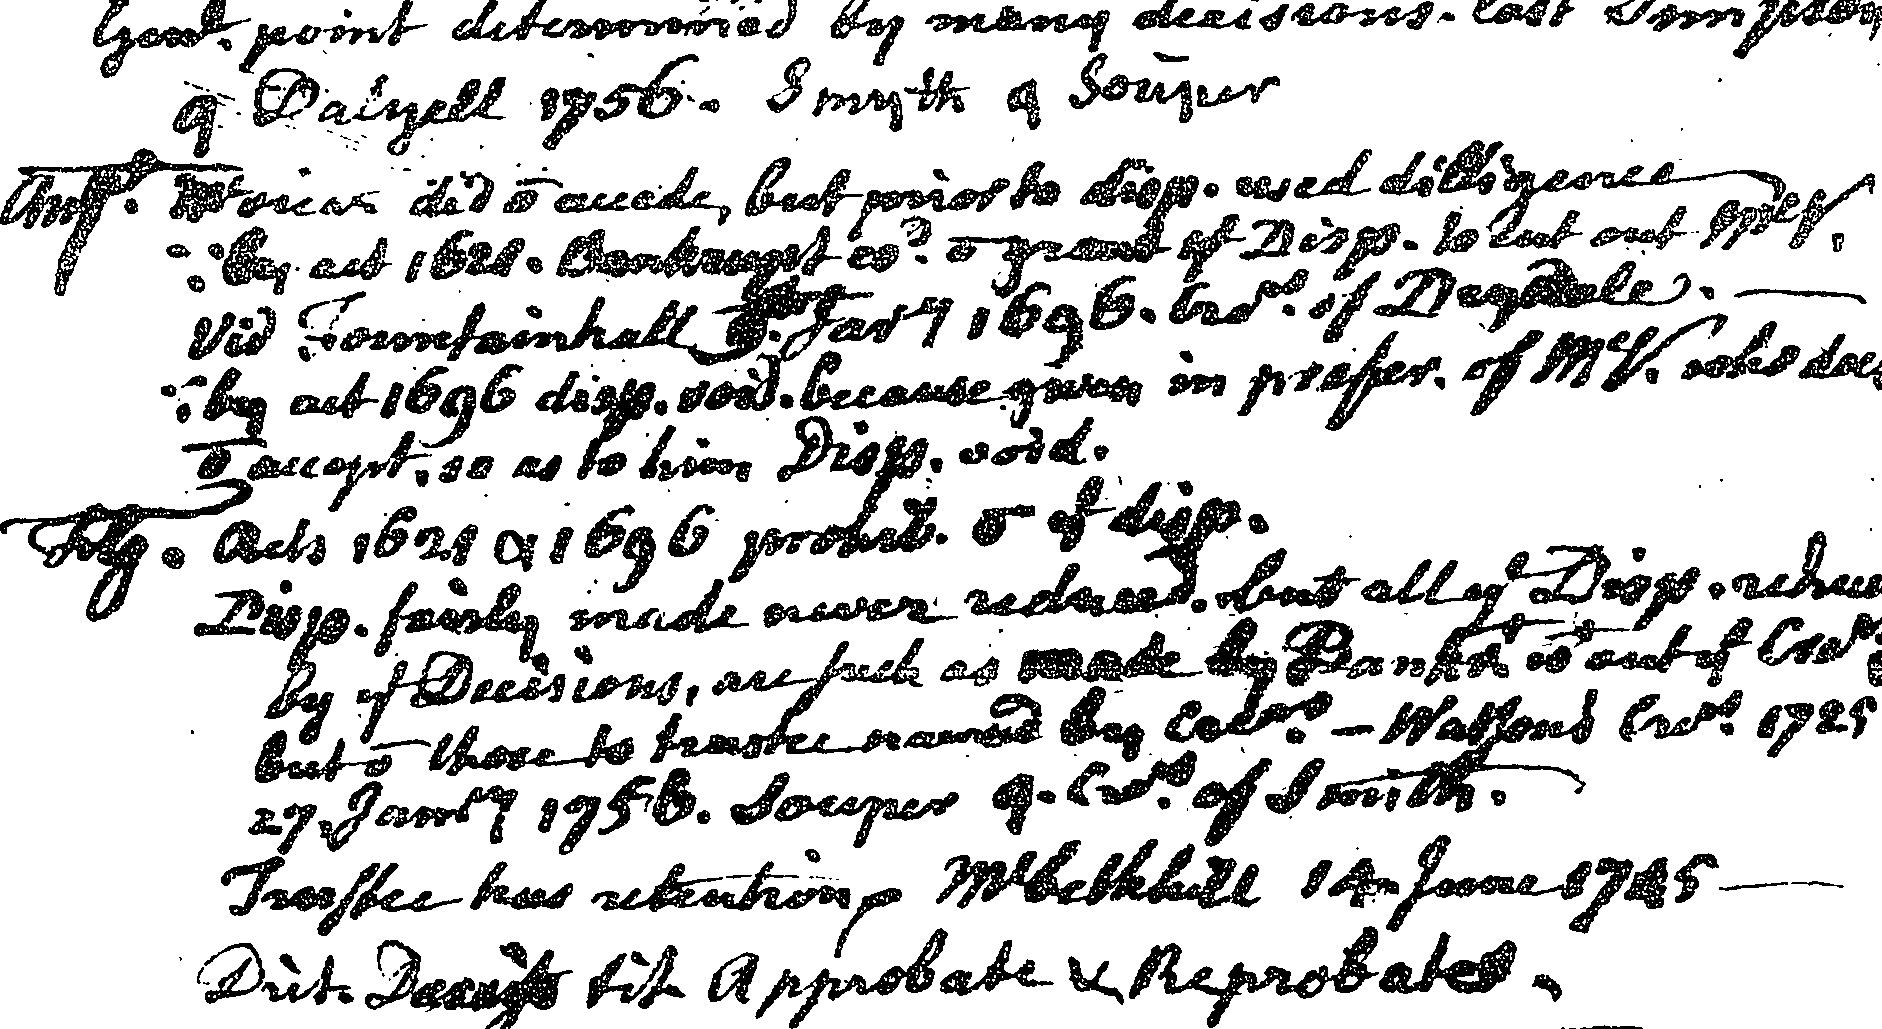 Genl. point determined by many decisions. last Simpson
q Dalyell 1756. Smyth q Souper
Ansr. did ō accede, but prior to disp. used dilligence
∵ by act 1621. Bankrupt co.d ō grand yt Disp. to cut out McV.
Vid Fountainhall Jary 1696. Crs. of
∵ by act 1696 disp. void. because given in prefer. of McV. who does
ō accept, so as to him Disp. void.
Acts 1621 & 1696 prohib. ō yt disp.
Disp. fairly made never reduced. but all ye Disp. reduced
by yt Decisions, are such as made by Bankt. wt out yt Crs.
but ō those to trustee named by Crs. — Watson's Crs. 1725
27. Janry 1756. Souper q. Crs. of Smith.
Trustee has retention 14 June 1745 —
Dict. Decis tit Approbate & Reprobate.